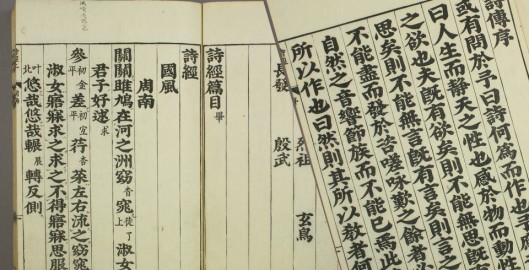 詩傳序
或有問於予曰詩何為而作也
曰人生而靜天之性也感於物而動性
之欲也夫既有欲矣則不能無思既
思矣則不能無言既有言矣則言之
不能盡而發於咨嗟咏歎之餘者
自然之音響節族而不能已焉此
所以作也曰然則其所以教者何
玄鳥
長發 殷武
詩經篇目畢
詩經
國風
周南
關關雎鳩在河之洲窈音窕徒了上淑女
君子好逑求
參初金平差初宜平荇杏菜左右流之窈窕
淑女寤寐求之求之不得寤寐思服
叶北悠哉悠哉輾展轉反側